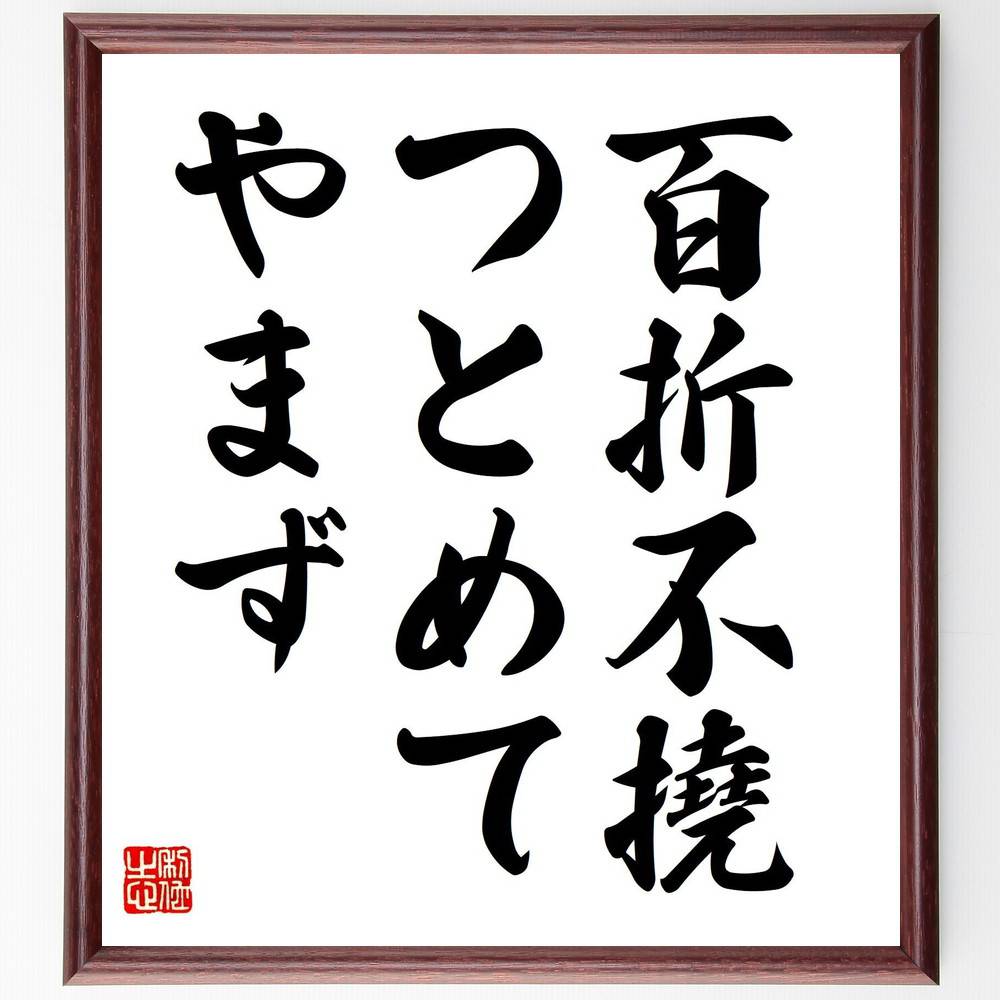 百折不撓
つとめて
やまず